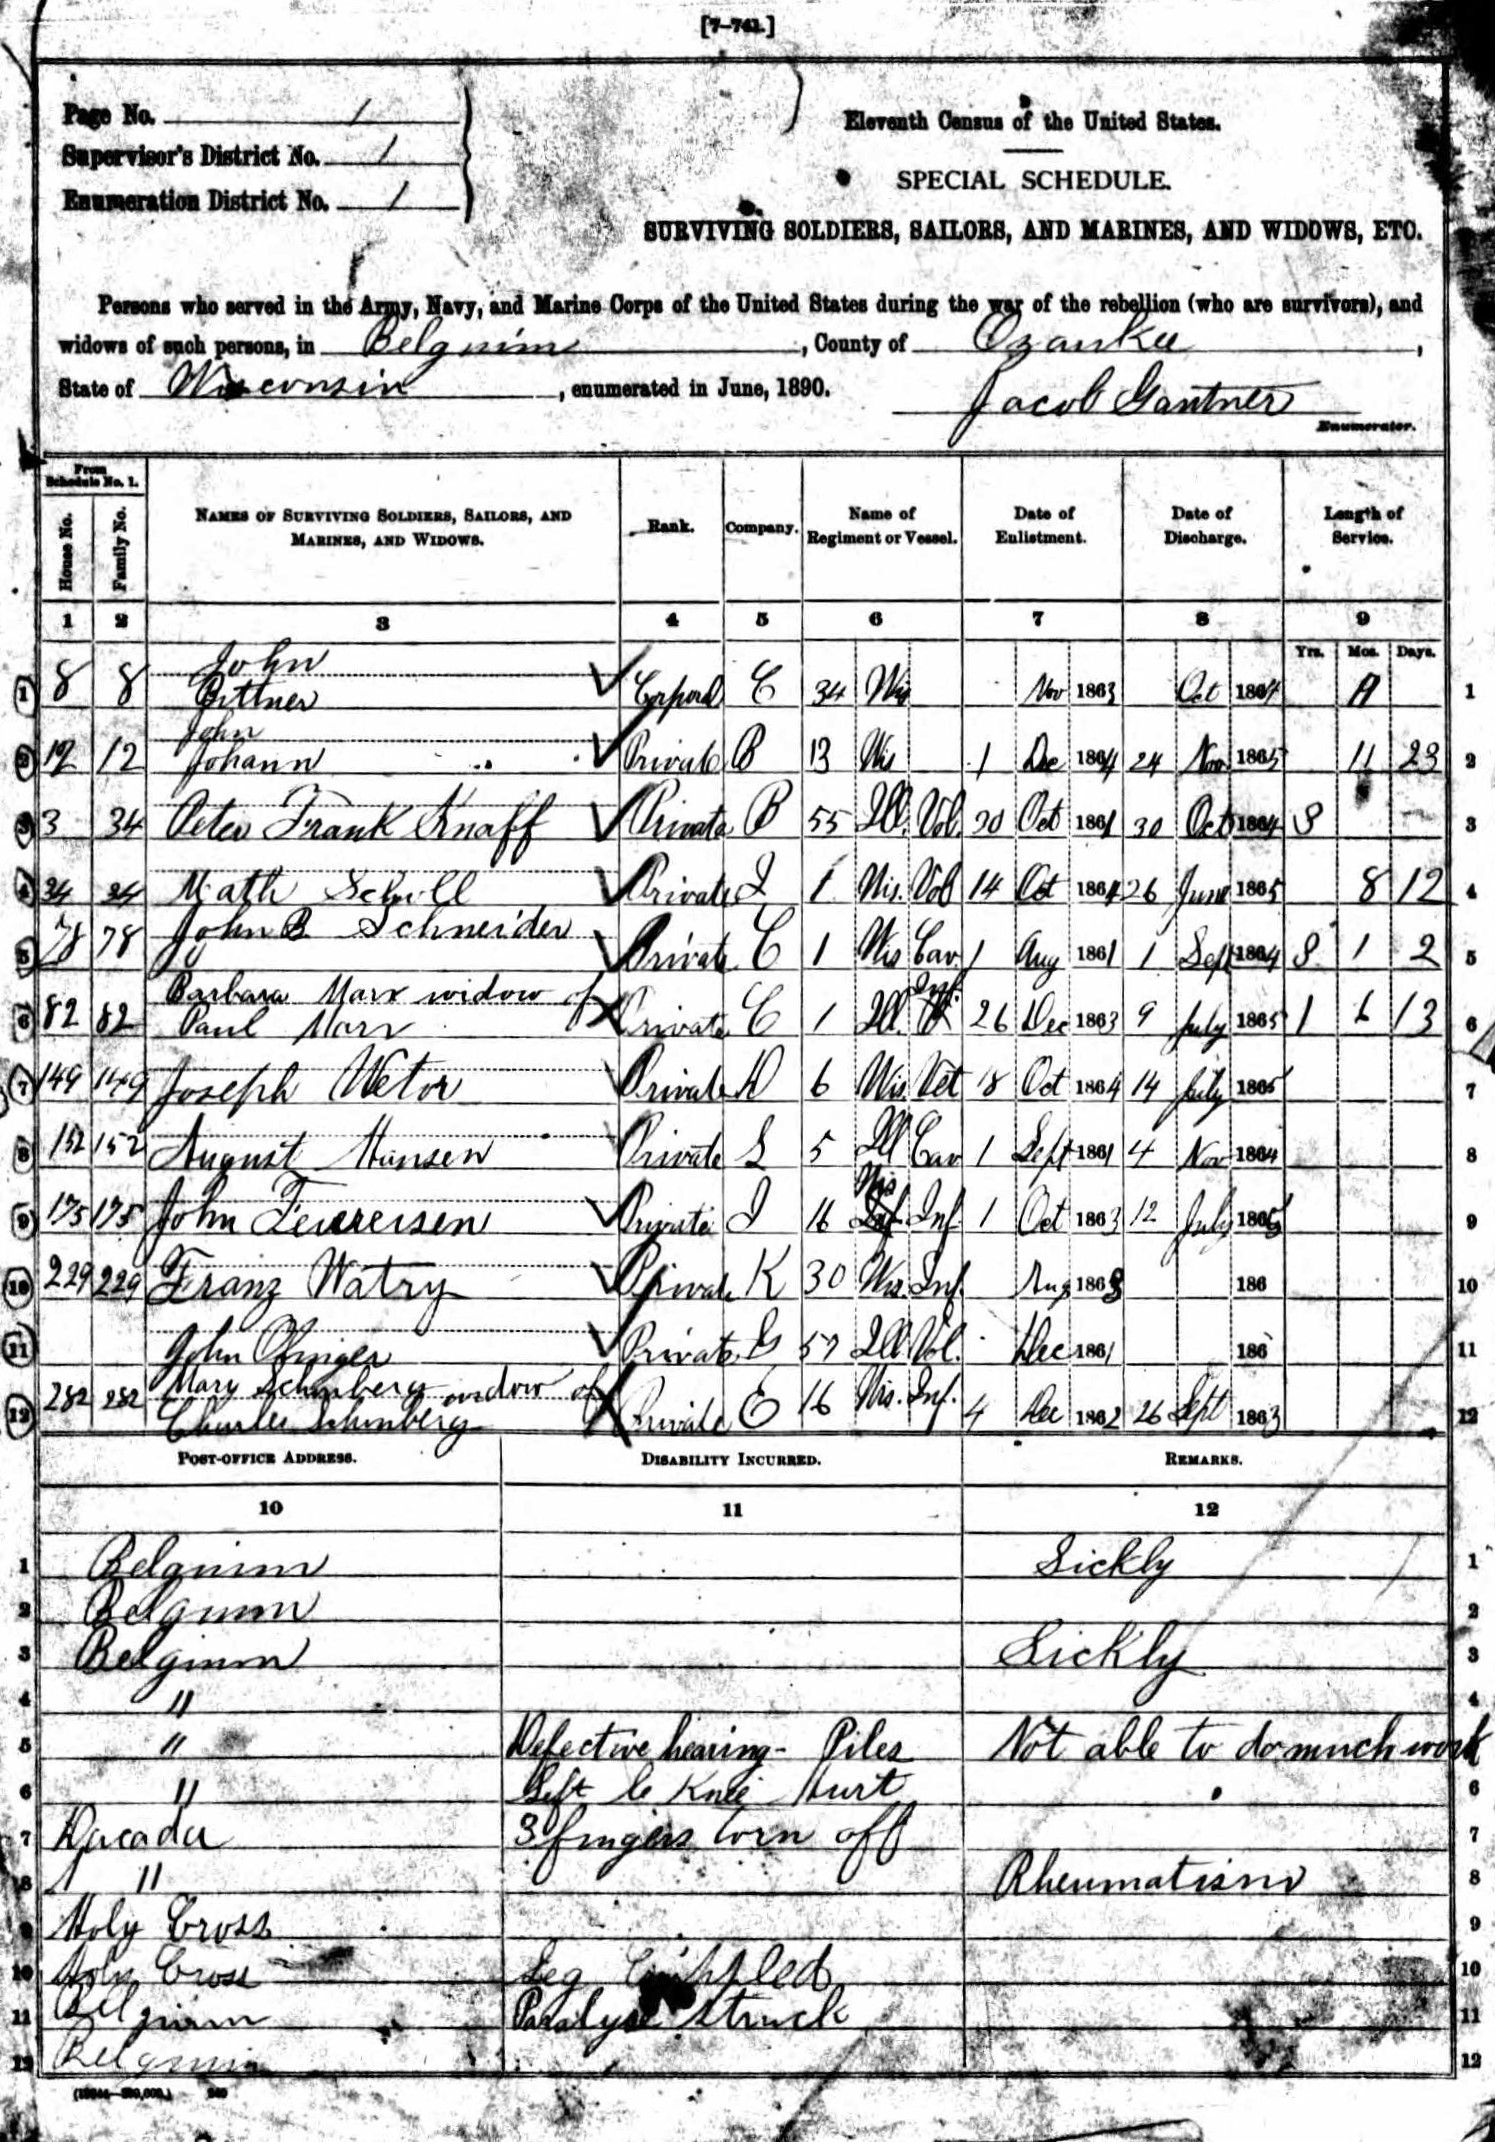 [7-741.]
Page No. 1
Supervisor's District No. 1
Enumeration District No. 1
Eleventh Census of the United States.
SPECIAL SCHEDULE.
SURVIVING SOLDIERS, SAILORS, AND MARINES, AND WIDOWS, ETC.
Persons who served in the Army, Navy, and Marine Corps of the United States during the war of the rebellion (who are survivors), and
widows of such persons, in Belgium, County of Ozaukee,
State of Wisconsin, enumerated in June, 1890.
Jacob Gantner
Enumerator.
From Schedule No. 1.
House No. Family No. NAMES OF SURVIVING SOLDIERS, SAILORS, AND MARINES, AND WIDOWS. Rank. Company. Name of Regiment or Vessel. Date of Enlistment. Date of Discharge. Length of Service.
1 2 3 4 5 6 7 8 9
Yrs. Mos. Days.
John
1 8 8 Bittner Corporal C 34 Wis Nov 1863 Oct 1864 1
John
2 12 12 Johann Private B 13 Wis 1 Dec 1864 24 Nov 1865 11 23 2
3 3 34 Peter Frank Knaff Private B 55 Ill. Vol. 30 Oct 1861 30 Oct 1864 3 3
4 34 34 Math Scholl Private I 1 Wis. Vol 14 Oct 1864 26 June 1865 8 12 4
5 78 78 John B Schneider Private C 1 Wis Cav. 1 Aug 1861 1 Sept 1864 3 1 2 5
Barbara Marx widow of
6 82 82 Paul Marx Private C 1 Ill. Inf. 26 Dec 1863 9 July 1865 1 6 13 6
7 149 149 Joseph Wetor Private D 6 Wis. Vet 18 Oct 1864 14 July 1865 7
8 152 152 August Hansen Private L 5 Ill Cav 1 Sept 1861 4 Nov 1864 8
9 175 175 John Feuereisen Private I 16 Wis Inf 1 Oct 1863 12 July 1865 9
10 229 229 Franz Watry Private K 30 Wis. Inf. Aug 1863 186 10
11 John Ohinger Private G 57 Ill Vol. Dec 1861 186 11
Mary Schinberg widow of
12 282 282 Charles Schinberg Private E 16 Wis. Inf. 4 Dec 1862 26 Sept 1863 12
POST-OFFICE ADDRESS. DISABILITY INCURRED. REMARKS.
10 11 12
1 Belgium Sickly 1
2 Belgium 2
3 Belgium Sickly 3
4 " 4
5 " Defective hearing - Piles Not able to do much work
6 " Left Knee Hurt 6
7 Dacada 3 fingers torn off 7
8 " Rheumatism 8
9 Holy Cross 9
10 Holy Cross Leg Crippled 10
11 Belgium Paralyse struck 11
12 Belgium 12